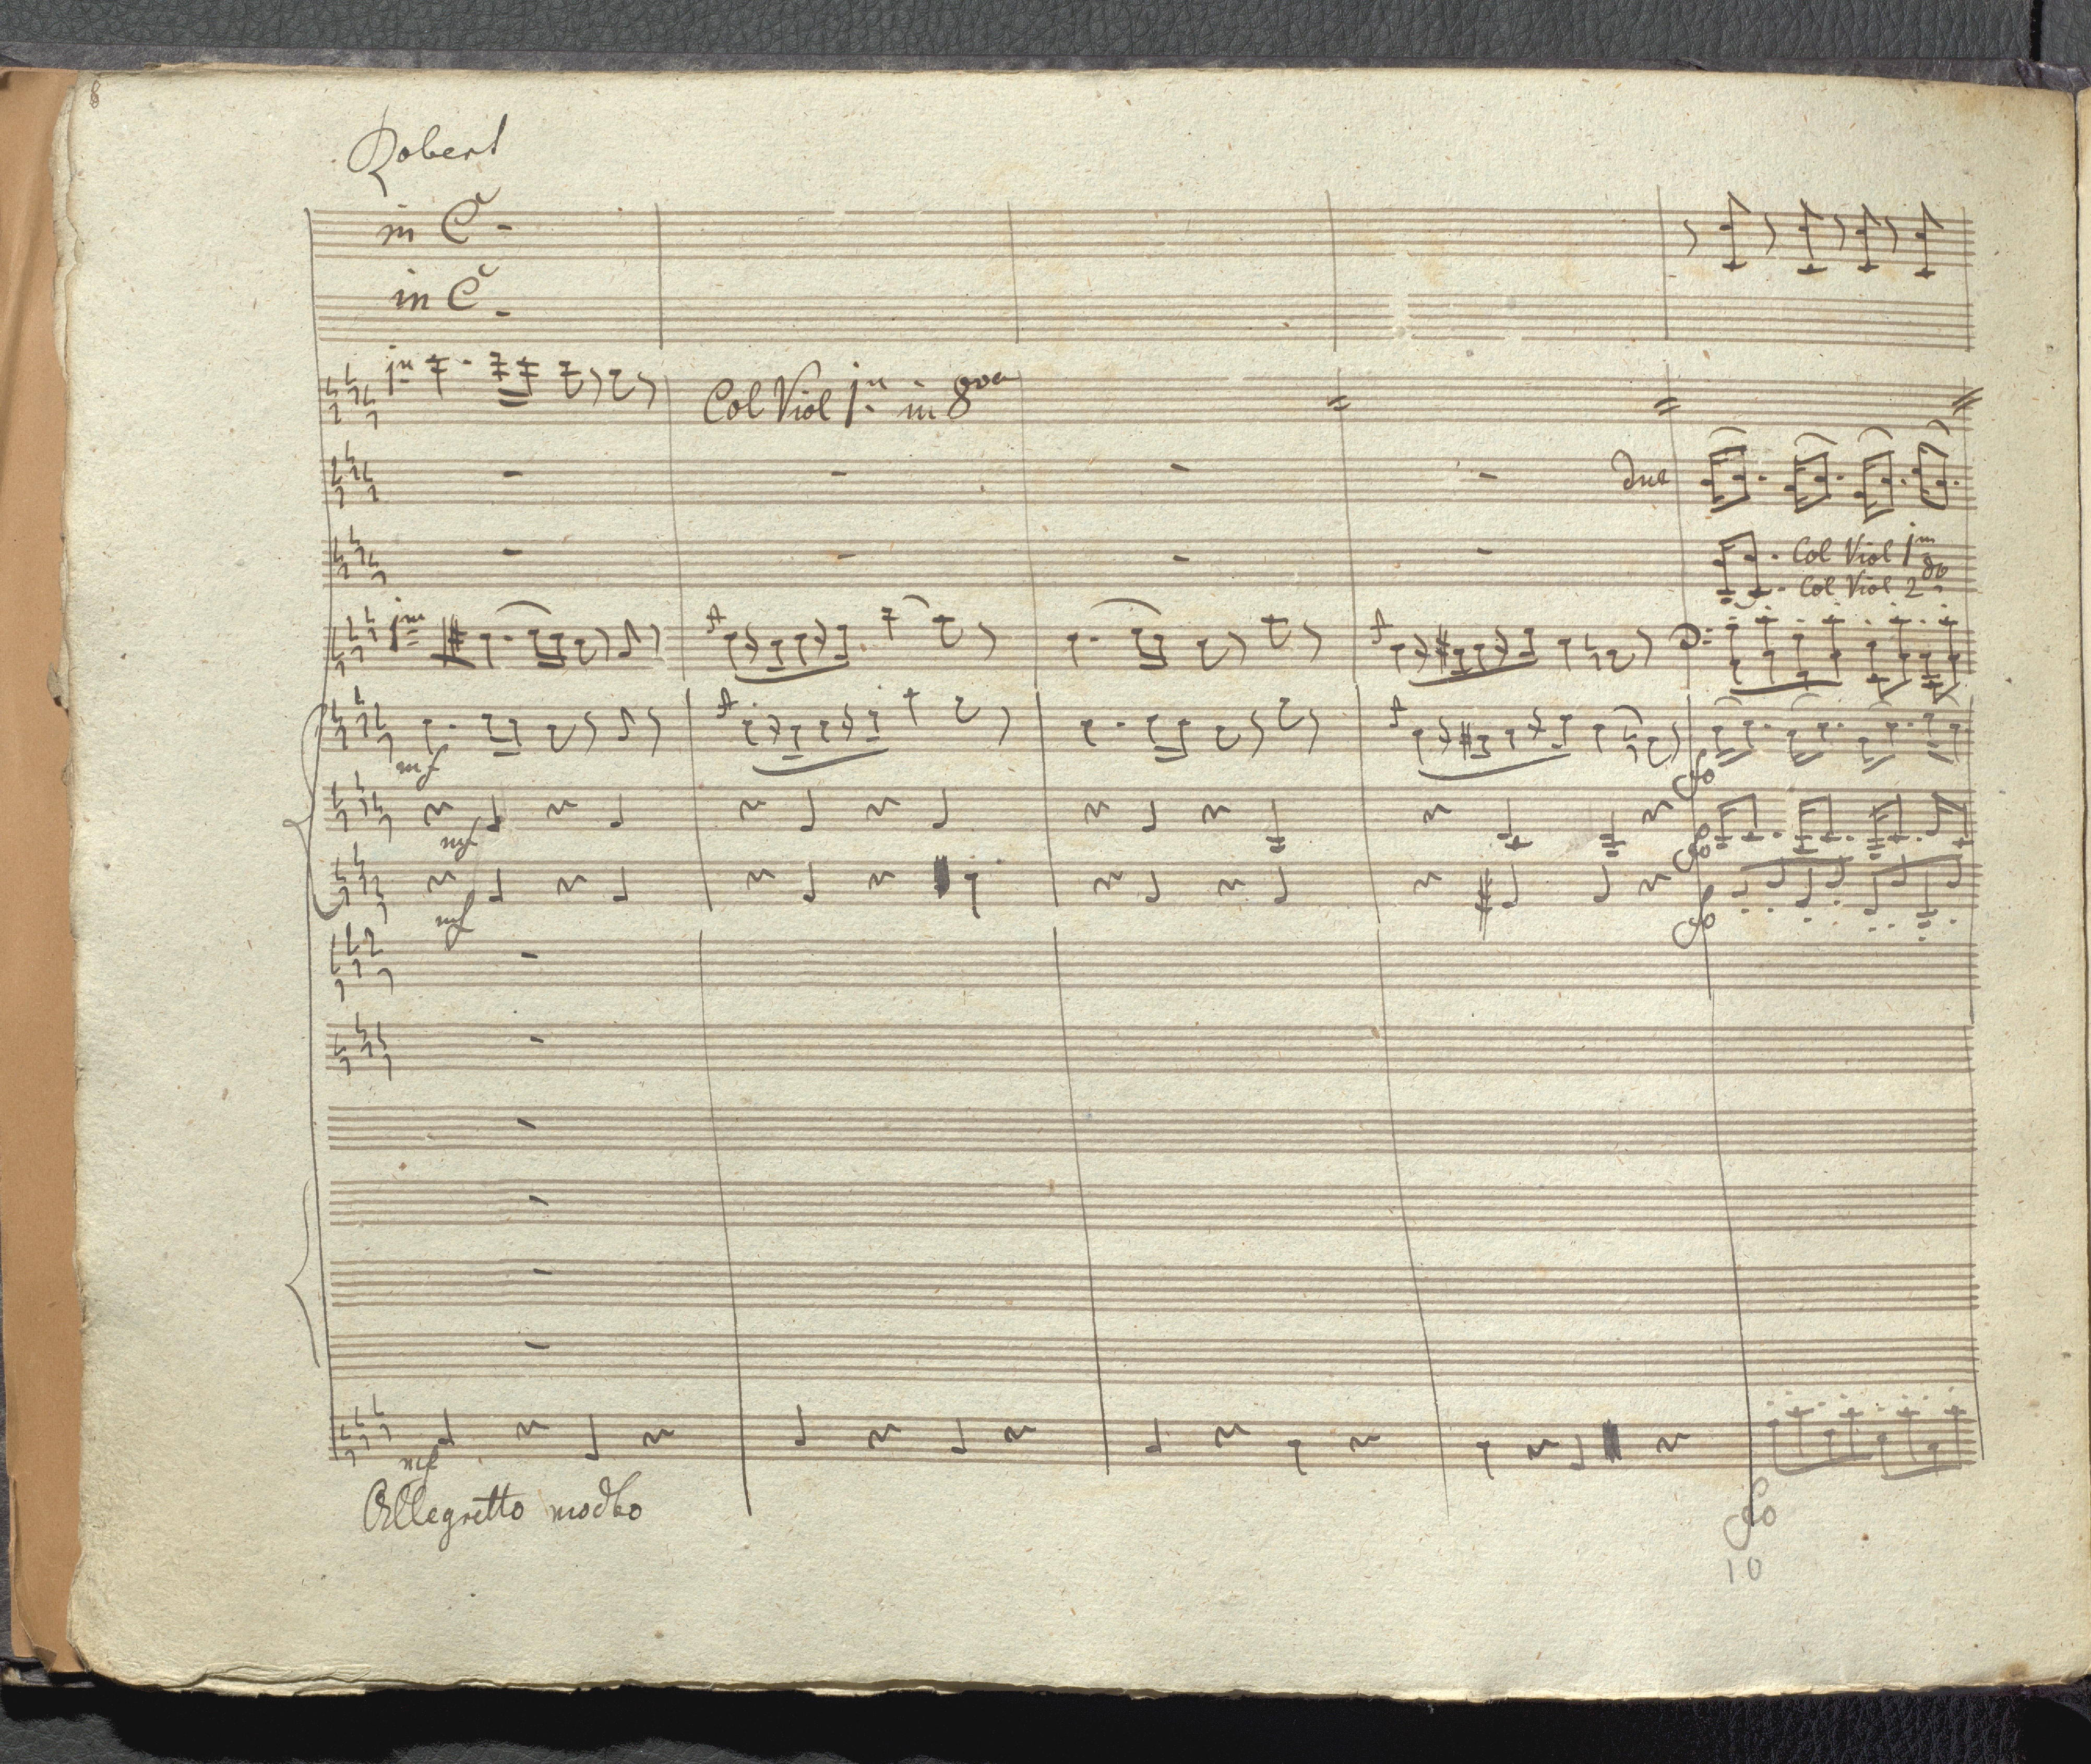 8
Robert
in C
in C
1mo
Col Viol 1mo in 8va
due
Col Viol 1mo
Col Viol 2do
1mo
mf
fo
mf
fo
mf
fo
mf
Allegretto modto
fo
10